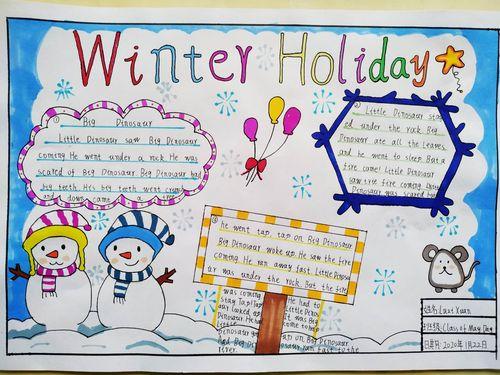 Winter Holiday
① Big Dinosaur
Little Dinosaur saw Big Dinosaur
coming. He went under a rock. He was
scared of Big Dinosaur. Big Dinosaur had
big teeth. His big teeth went crunch
and down came a tree.
② Little Dinosaur stay
ed under the rock. Big
Dinosaur ate all the leaves
and he went to sleep. But a
fire came! Little Dinosaur
saw the fire coming. Little
Dinosaur was scared
③ he went tap, tap on Big Dinosaur.
Big Dinosaur woke up. He saw the fire
coming. He ran away fast. Little Dinosa
ur was under the rock. But the fire
was coming He had to
stay Tap! Tap! Little Dinos
aur looked up. It was Big
Dinosaur. He come to help
Little
tap on Big Dinosaur
had Big Dinosaur ran fast to the
river.
姓名: Xuan
班级: Class of May Day
日期: 2020年1月22日